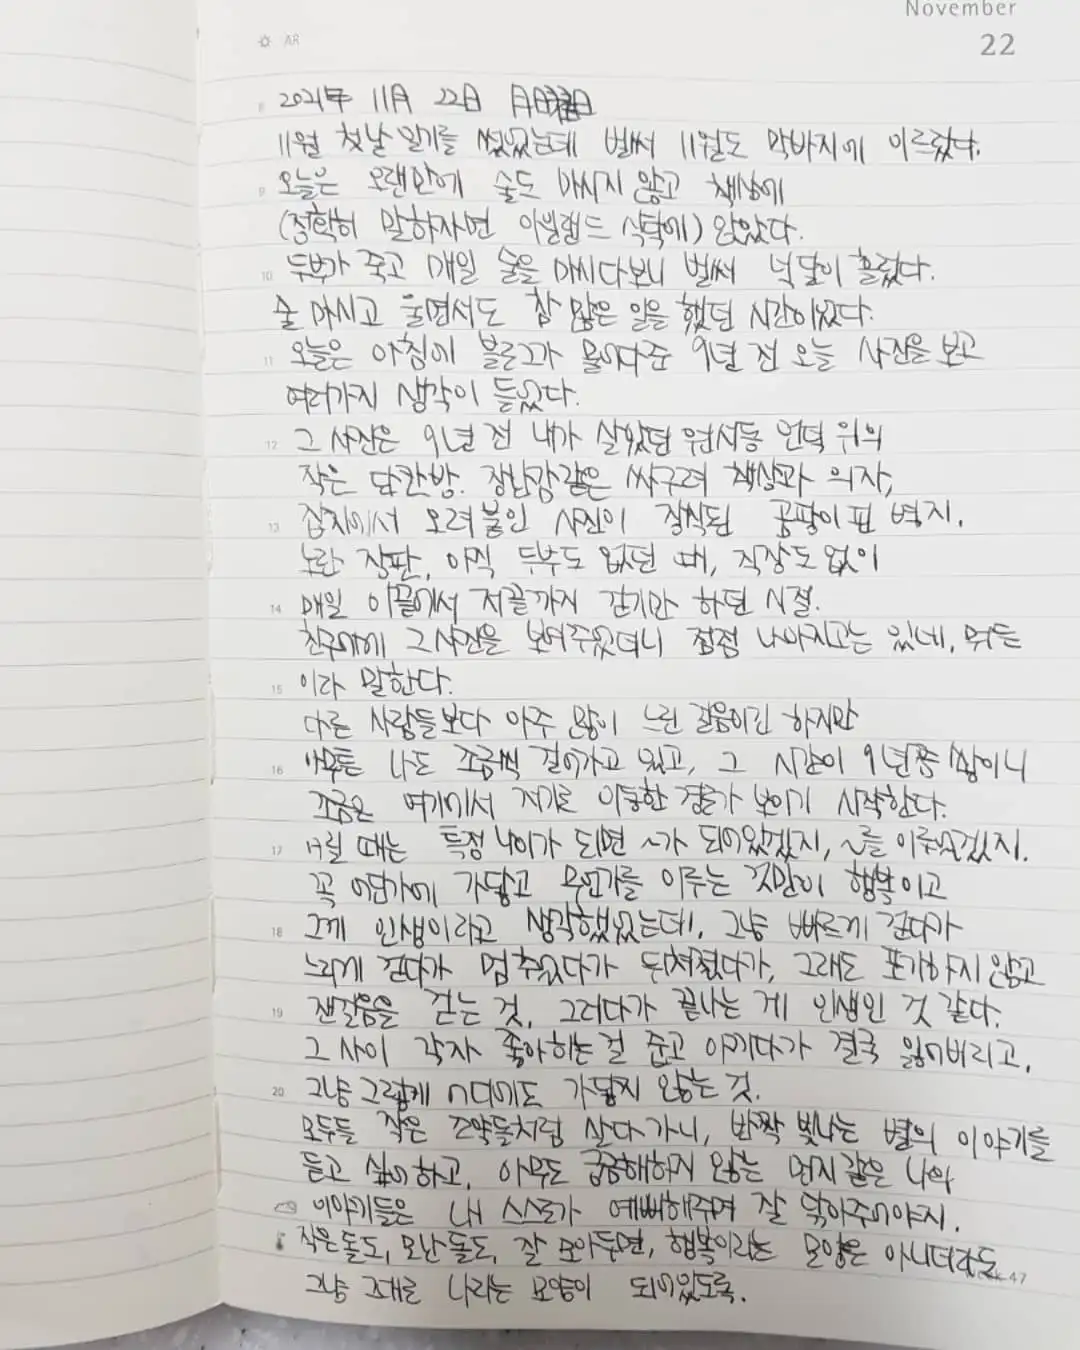 November
22
AR
8 2021年 11月 22日 月曜日
11월 첫날 일기를 썼었는데 벌써 11월도 막바지에 이르렀다.
9 오늘은 오랜만에 술도 마시지 않고 책상에
(정확히 말하자면 아일랜드 식탁에) 앉았다.
10 두부가 죽고 매일 술을 마시다보니 벌써 넉달이 흘렀다.
술 마시고 울면서도 참 많은 일을 했던 시간이었다.
11 오늘은 아침에 블로그가 물어다준 9년 전 오늘 사진을 보고
여러가지 생각이 들었다.
12 그 사진은 9년 전 내가 살았던 원서동 언덕 위의
작은 단칸방. 장난감같은 싸구려 책상과 의자,
13 잡지에서 오려붙인 사진이 장식된 곰팡이 핀 벽지,
노란 장판, 아직 두부도 없던 때, 직장도 없이
14 매일 이끝에서 저끝까지 걷기만 하던 시절.
친구에게 그 사진을 보여주었더니 점점 나아지고는 있네, 뭐든
15 이라 말한다.
다른 사람들보다 아주 많이 느린 걸음이긴 하지만
16 아무튼 나도 조금씩 걸어가고 있고, 그 시간이 9년쯤 쌓이니
조금은 여기에서 저기로 이동한 경로가 보이기 시작한다.
17 어릴 때는 특정 나이가 되면 ~가 되어있겠지, ~를 이루었겠지.
꼭 어딘가에 가닿고 무언가를 이루는 것만이 행복이고
18 그게 인생이라고 생각했었는데, 그냥 빠르게 걷다가
느리게 걷다가 멈추었다가 뒤쳐졌다가, 그래도 포기하지 않고
19 잰걸음을 걷는 것, 그러다가 끝나는 게 인생인 것 같다.
그 사이 각자 좋아하는 걸 줍고 아끼다가 결국 잃어버리고,
20 그냥 그렇게 어디에도 가닿지 않는 것.
모두들 작은 조약돌처럼 살다 가니, 반짝 빛나는 별의 이야기를
듣고 싶어하고, 아무도 궁금해하지 않는 먼지같은 나의
이야기들은 내 스스로가 예뻐해주며 잘 닦아주어야지.
작은 돌도, 모난 돌도, 잘 모아두면, 행복이라는 모양은 아니더라도
WEEK 47
그냥 그대로 나라는 모양이 되어있도록.